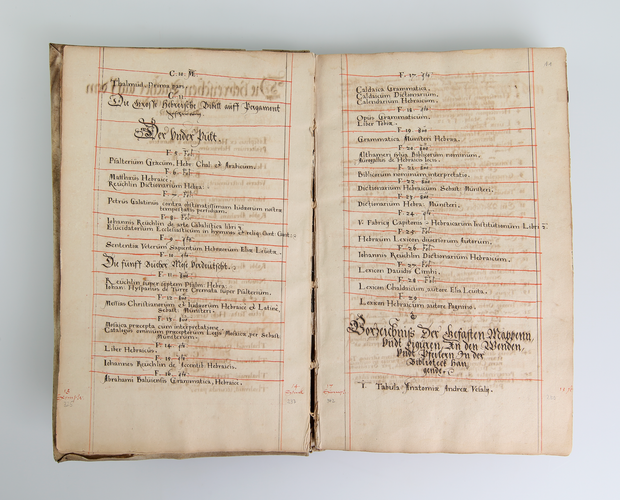 C. 10. fol.
Thalmud.
Die grosse Hebreische Bibell auff Pergament
Der Under Pult.
F. 5. fol.
Psalterium Graecum, Hebr. Chal. et Arabicum.
F. 6. fol.
Matthaeus Hebraicè.
Reuchlin Dictionarium Hebra:
F. 7. fol.
Petrus Galatinus contra obstinatissimam Iudaeorum nostrae
tempestatis perfidiam.
F. 8. fol.
Iohannis Reuchlin de arte Cabalistica libri 3.
Elucidatorium Ecclesiasticum in hymnos
F. 9. 4to
Sententiae Veterum Sapientum Hebraicorum Eliae Leuitae.
F. 10. 4to
Die fünff Bücher Mosi Verdeutscht.
F. 11. 8uo
Reuchlin super septem Psalm: Hebra.
Iohan: Hyspanus de Turre Cremata super Psalterium.
F. 12. 8uo
Messias Christianorum et Iudaeorum Hebraicè et Latinè,
Sebast: Münsteri.
F. 13. 8uo
Mosaica praecepta cum interpretatione.
Catalogus omnium praeceptorum Legis Mosaicae per Sebast:
Münsterum.
F. 14. 4to
Liber Hebraicus.
F. 15. 4to
Iohannes Reuchlin de Accentib. Hebraicis.
F. 16. 4to
Abrahami Balmensis Grammatica, Hebraicè.
F. 17. 4to
Caldaica Grammatica.
Caldaicum Dictionarium.
Calendarium Hebraicum.
F. 18. 4to
Opus Grammaticum.
Liber Tobiae.
F. 19. 8uo
Grammatica Münsteri Hebraea.
F. 20. 8uo
Althameri sylva Biblicorum nominum.
F. 21. 8uo
Biblicorum nominum, interpretatio.
F. 22. 8uo
Dictionarium Hebraicum Sebast: Münsteri.
F. 23. 8uo
Dictionarium Hebra: Münsteri.
F. 24. 4to
V. Fabricij Capitonis Hebraicarum Institutionum Libri 2.
F. 25. fol:
Hebraeum Lexicon diuersorum Autorum.
F. 26. fol:
Iohannis Reuchlin Dictionarium Hebraicum.
F. 27. fol:
Lexicon Dauidis Cimhi.
F. 28. fol:
Lexicon Chaldaicum autore Elia Leuita.
F. 29
Lexicon Hebraicum autore Pagnino.
Verzeichnus Der gefasten Mappenn
Undt Figuren An den Wenden
Undt Pfeilern In der
Bibliotec han
gende.
1. Tabula Anatomiae Andreae Vesalij.